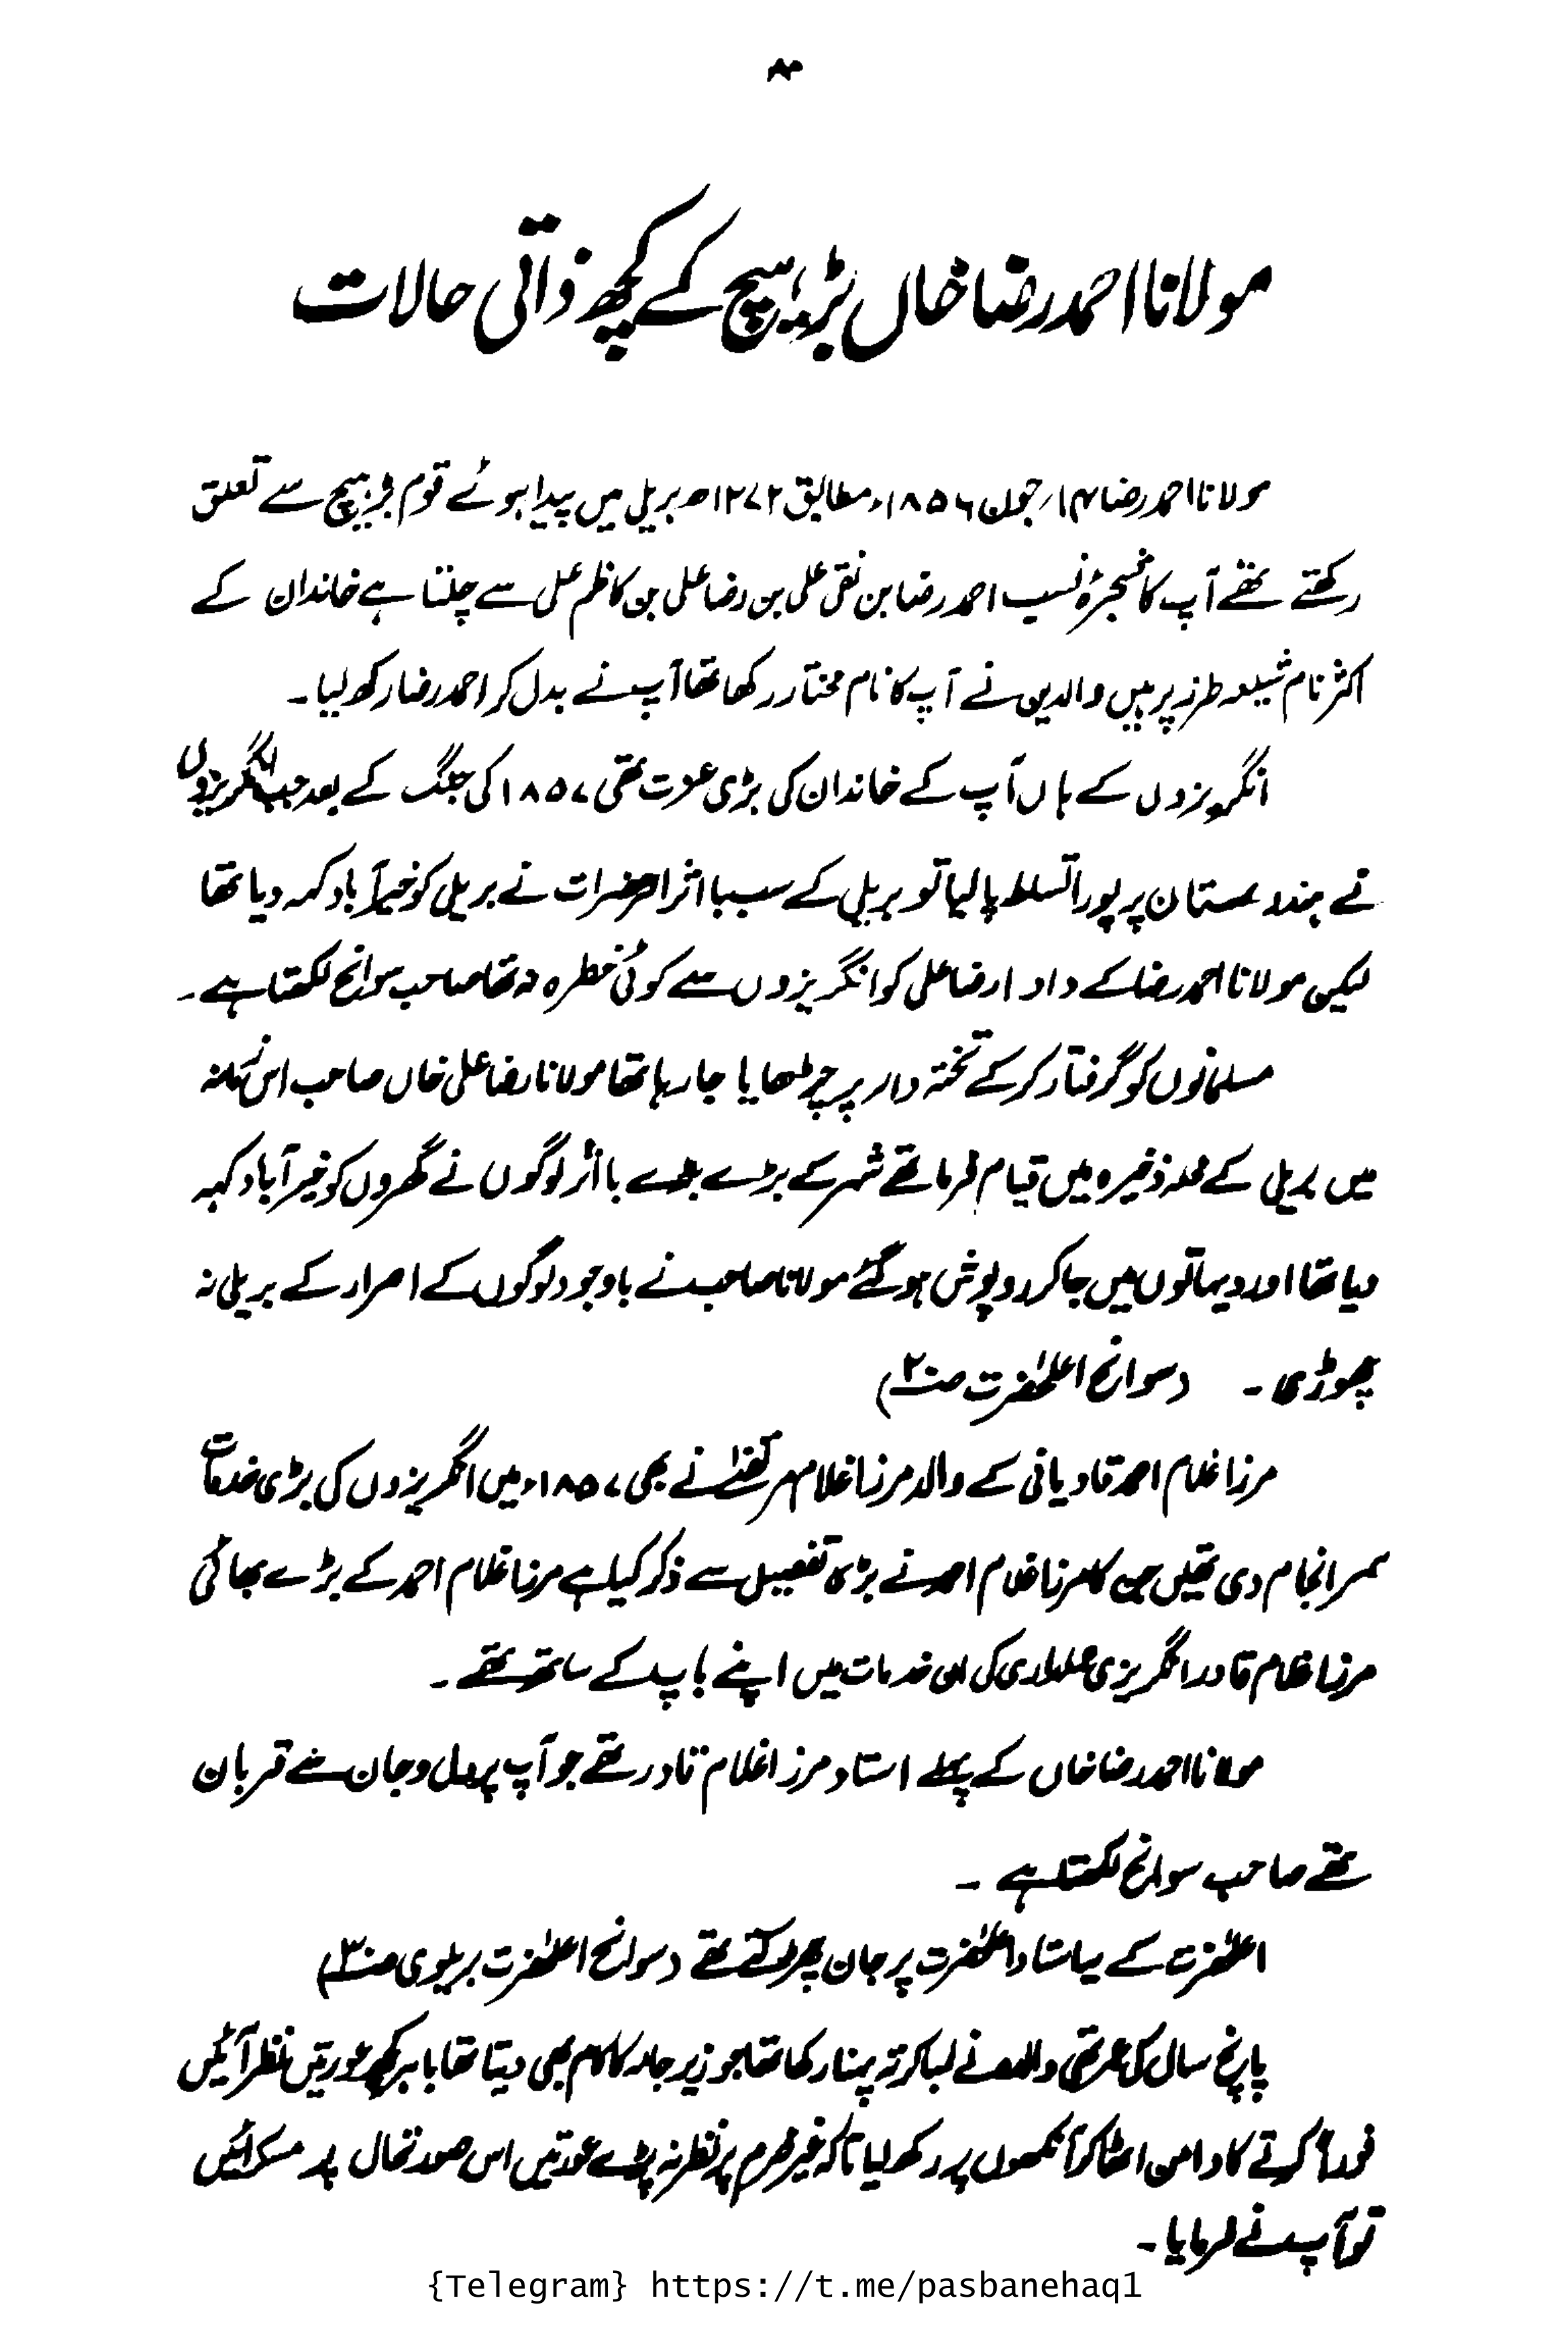 مولانا احمد رضا خاں بڑیہیچ کے کچھ ذاتی حالات
مولانا احمد رضا ۱۴ر جون ۱۸۵۶ء مطابق ۱۲۷۲ھ بریلی میں پیدا ہوئے قوم بڑیہیچ سے تعلق
رکھتے تھے آپ کا شجرۂ نسب احمد رضا بن نقی علی بن رضا علی بن کاظم علی سے چلتا ہے خاندان کے
اکثر نام شیعہ طرز پر ہیں والدین نے آپ کا نام مختار رکھا تھا آپ نے بدل کر احمد رضا رکھ لیا۔
انگریزوں کے ہاں آپ کے خاندان کی بڑی عزت تھی ۱۸۵۷ کی جنگ کے بعد جب انگریزوں
نے ہندوستان پر پورا تسلط پا لیا تو بریلی کے سب با اثر حضرات نے بریلی کو خیرآباد کہہ دیا تھا
لیکن مولانا احمد رضا کے دادا رضا علی کو انگریزوں سے کوئی خطرہ نہ تھا صاحب سوانح لکھتا ہے۔
مسلمانوں کو گرفتار کر کے تختہ دار پر چڑھایا جا رہا تھا مولانا رضا علی خاں صاحب اس زمانہ
میں بریلی کے محلہ ذخیرہ میں قیام فرما تھے شہر کے بڑے بڑے با اثر لوگوں نے گھروں کو خیرآباد کہہ
دیا تھا اور دیہاتوں میں جا کر روپوش ہو گئے مولانا صاحب نے باوجود لوگوں کے اصرار کے بریلی نہ
چھوڑی۔ (سوانح اعلحضرت صـ۲)
مرزا غلام احمد قادیانی کے والد مرزا غلام مرتضیٰ نے بھی ۱۸۵۷ء میں انگریزوں کی بڑی خدمات
سرانجام دی تھیں جن کا مرزا غلام احمد نے بڑی تفصیل سے ذکر کیا ہے مرزا غلام احمد کے بڑے بھائی
مرزا غلام قادر انگریزی عملداری کی ان خدمات میں اپنے باپ کے ساتھ تھے۔
مولانا احمد رضا خاں کے پہلے استاد مرزا غلام قادر تھے جو آپ پر دل و جان سے قربان
تھے صاحب سوانح لکھتا ہے۔
اعلحضرت کے یہ استاد اعلحضرت پر جان چھڑکتے تھے (سوانح اعلحضرت بریلوی صـ۳)
پانچ سال کی عمر تھی والدہ نے لمبا کرتہ پہنا رکھا تھا جو زیر جامہ کا کام بھی دیتا تھا باہر کچھ عورتیں نظر آئیں
فوراً کرتے کا دامن اٹھا کر آنکھوں پر رکھ لیا تاکہ غیر محرم پر نظر نہ پڑے عورتیں اس صورتحال پر مسکرائیں
تو آپ نے فرمایا۔
{Telegram} https://t.me/pasbanehaq1